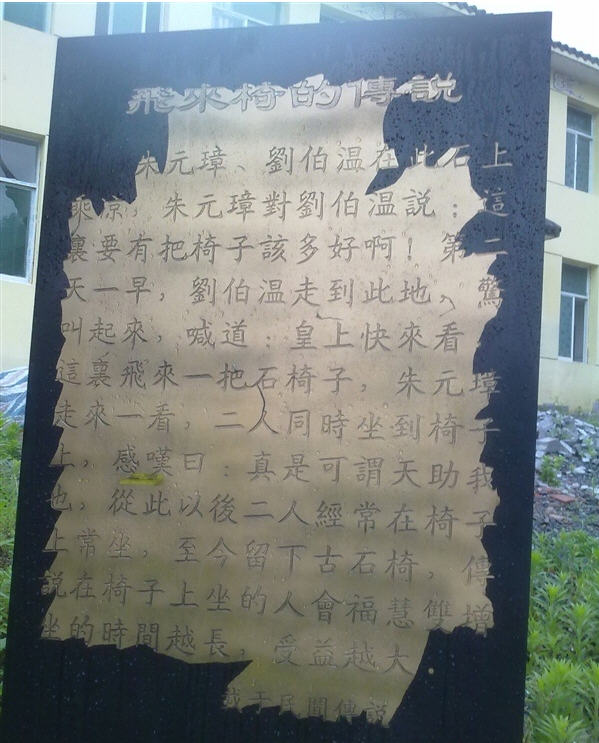 飛來椅的傳説
朱元璋、劉伯温在此石上
乘凉，朱元璋對劉伯温説：這
裏要有把椅子該多好啊！第二
天一早，劉伯温走到此地、驚
叫起來，喊道：皇上快來看，
這裏飛來一把石椅子，朱元璋
走來一看，二人同時坐到椅子
上，感嘆曰：真是可謂天助我
也，從此以後二人經常在椅子
上常坐，至今留下古石椅，傳
説在椅子上坐的人會福慧雙增
坐的時間越長，受益越大
載于民間傳説